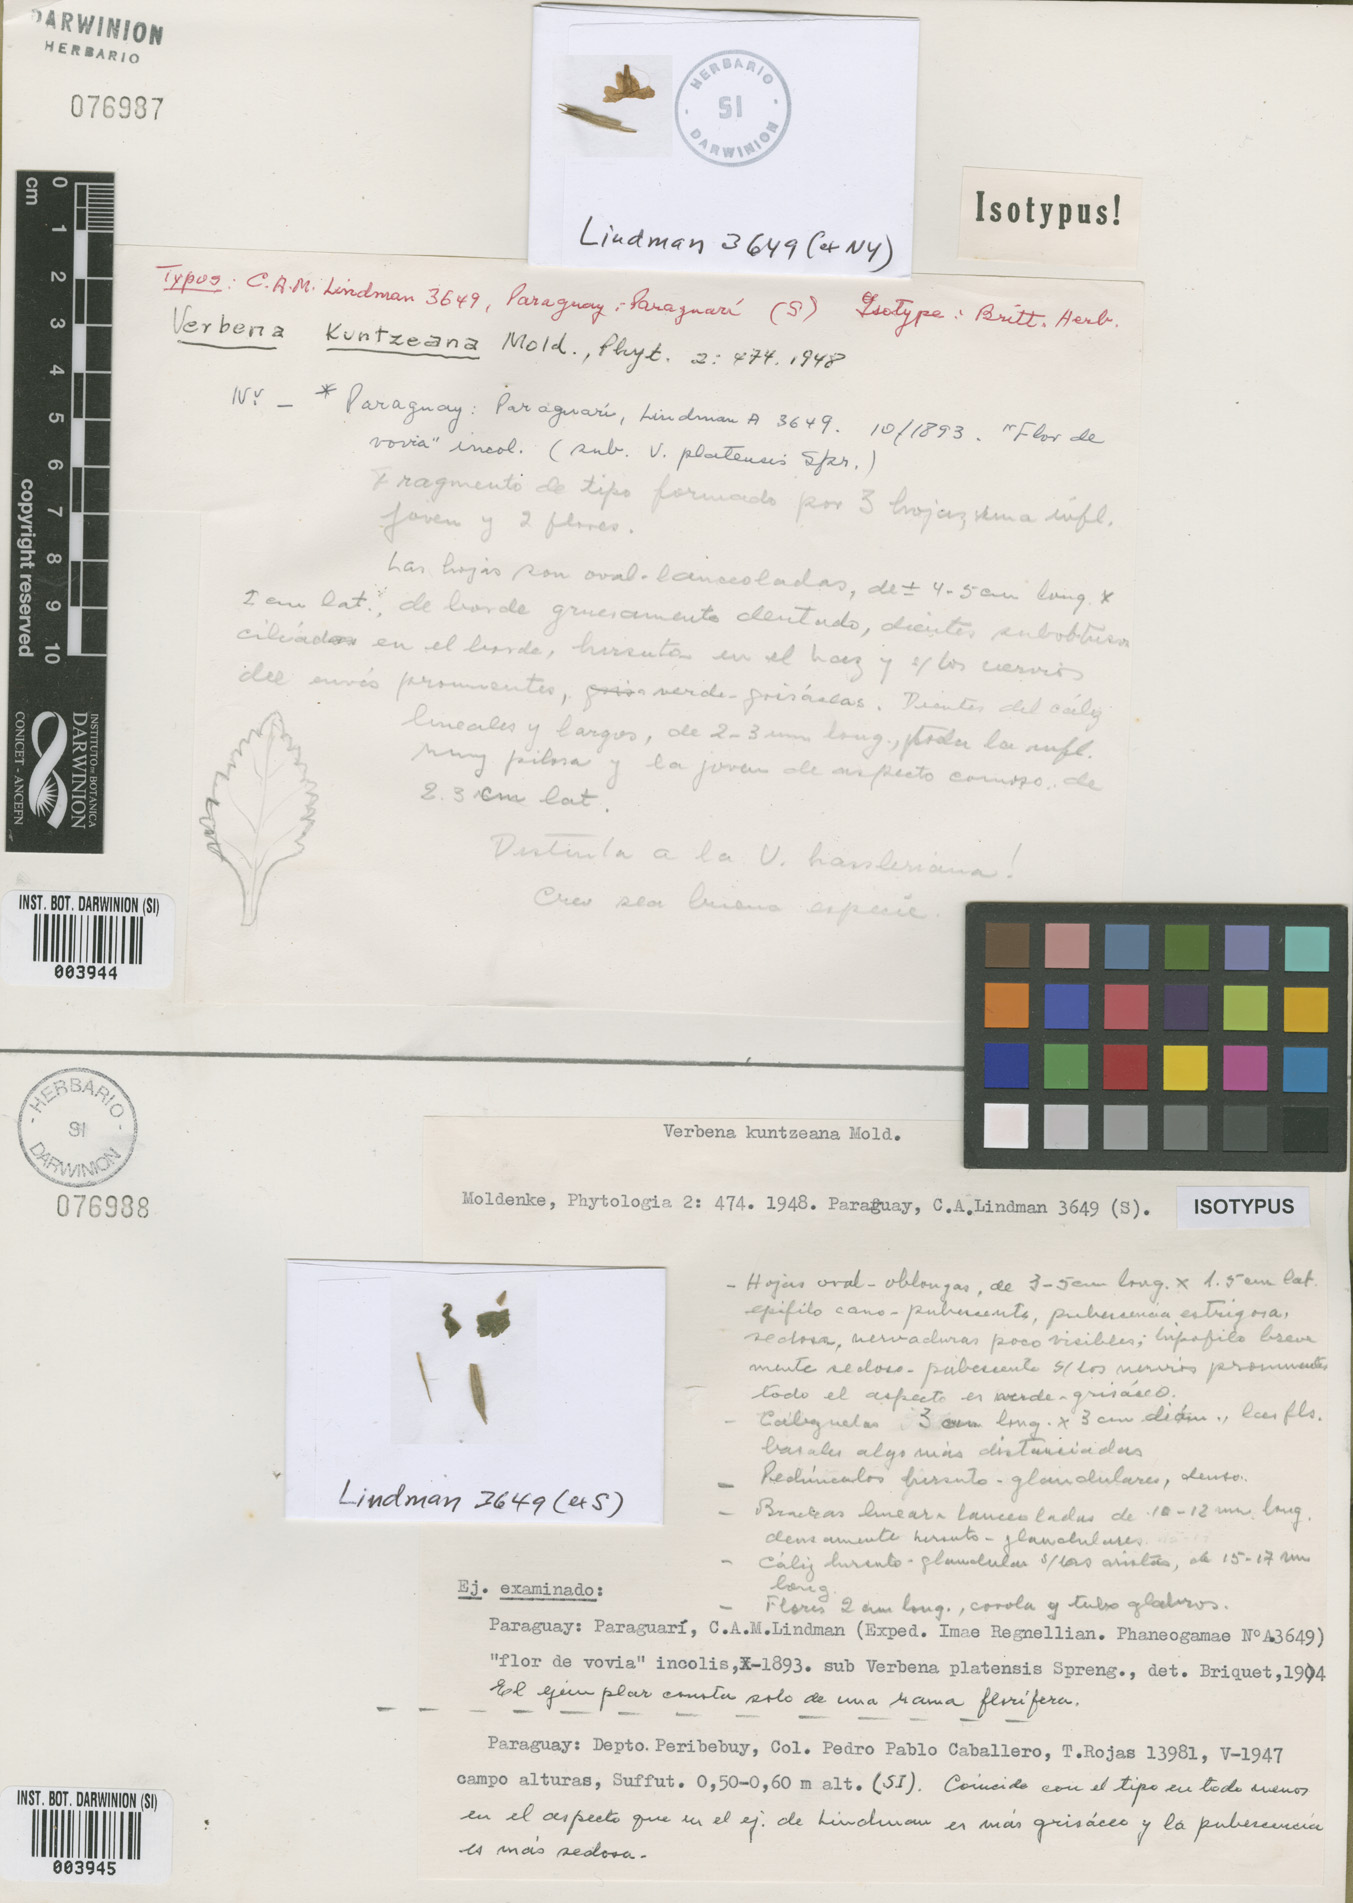 DARWINION
HERBARIO
076987
HERBARIO
SI
DARWINION
Lindman 3649 (ex NY)
Isotypus!
cm
0 1 2 3 4 5 6 7 8 9 10
copyright reserved
INSTITUTO DE BOTANICA
DARWINION
CONICET - ANCEFN
Typus: C.A.M. Lindman 3649, Paraguay: Paraguarí (S) Isotype: Britt. Herb.
Verbena Kuntzeana Mold., Phyt. 2: 474. 1948
NY - * Paraguay: Paraguarí, Lindman A 3649. 10/1893. "Flor de
vovia" incol. (sub. V. platensis Spr.)
Fragmento de tipo formado por 3 hojas, una infl.
joven y 2 flores.
Las hojas son oval-lanceoladas, de ± 4-5 cm long. x
2 cm lat., de borde gruesamente dentado, dientes subobtusos
ciliados en el borde, hirsuta en el haz y s/ los nervios
del envés prominentes, verde-grisáceas. Dientes del cáliz
lineales y largos, de 2-3 mm long., toda la infl.
muy pilosa y la joven de aspecto comoso, de
2.3 cm lat.
Distinta a la V. hassleriana!
Creo sea buena especie.
INST. BOT. DARWINION (SI)
003944
HERBARIO
SI
DARWINION
076988
Verbena kuntzeana Mold.
Moldenke, Phytologia 2: 474. 1948. Paraguay, C.A.Lindman 3649 (S).
ISOTYPUS
- Hojas oval-oblongas, de 3-5 cm long. x 1.5 cm lat.
epifilo cano-pubescente, pubescencia estrigosa,
sedosa, nervaduras poco visibles; hipofilo breve
mente sedoso-pubescente s/ los nervios prominentes
todo el aspecto es verde-grisáceo.
- 3 cm long. x 3 cm diám., las fls.
basales algo más distanciadas
- Pedúnculos hirsuto-glandulares, denso.
- Bracteas linear-lanceoladas de 10-12 mm long.
densamente hirsuto-glandulares.
- Cáliz hirsuto-glandular s/ las aristas, de 15-17 mm
long.
- Flores 2 cm long., corola y tubo glabros.
Lindman 3649 (ex S)
Ej. examinado:
Paraguay: Paraguarí, C.A.M.Lindman (Exped. Imae Regnellian. Phaneogamae NºA3649)
"flor de vovia" incolis,X-1893. sub Verbena platensis Spreng., det. Briquet,1904
El ejemplar consta solo de una rama florífera.
Paraguay: Depto. Peribebuy, Col. Pedro Pablo Caballero, T.Rojas 13981, V-1947
campo alturas, Suffut. 0,50-0,60 m alt. (SI). Coincide con el tipo en todo menos
en el aspecto que en el ej. de Lindman es más grisáceo y la pubescencia
es más sedosa.
INST. BOT. DARWINION (SI)
003945